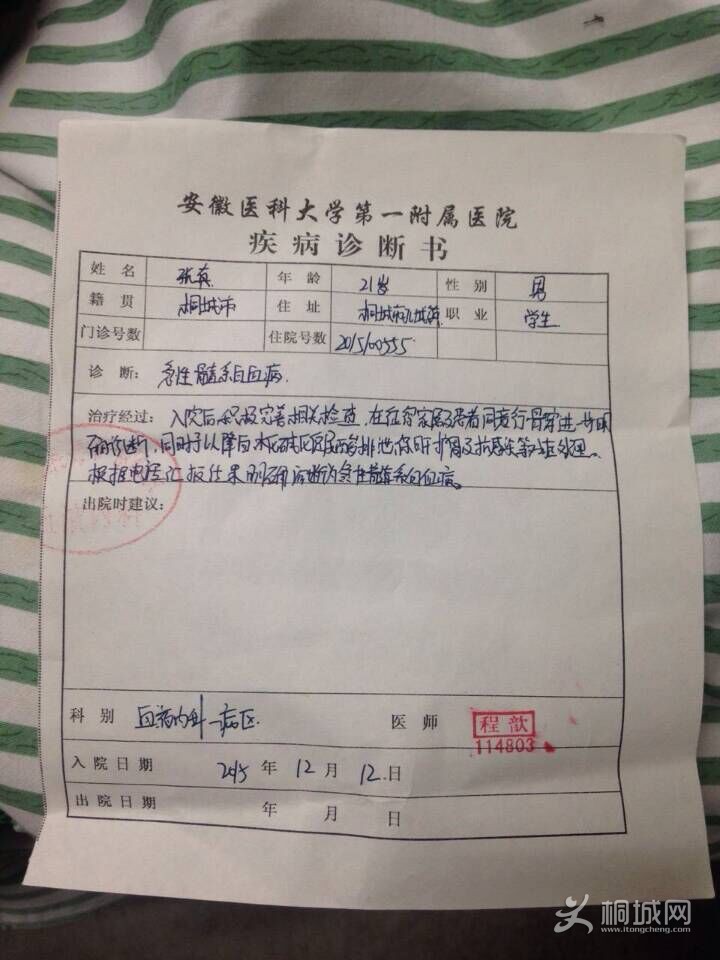 安徽医科大学第一附属医院
疾病诊断书
姓名 张 年龄 21岁 性别 男
籍贯 桐城市 住址 桐城市 职业 学生
门诊号数 住院号数 201510055
诊断: 急性髓系白血病.
治疗经过: 入院后积极完善相关检查, 在征得家属及患者同意行骨穿进一步明
确诊断, 同时予以降白 水化碱化 排泄、保肝护胃及抗感染等对症处理。
根据电话汇报结果明确诊断为急性髓系白血病。
出院时建议:
科别 血液内科一病区. 医师 程歆
114803
入院日期 2015 年 12 月 12 日
出院日期 年 月 日
桐城网
www.itongcheng.com